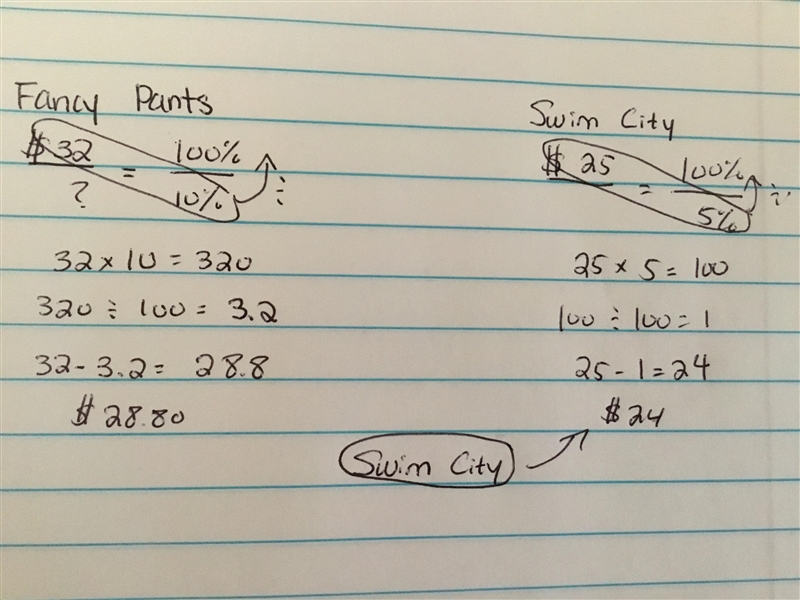 Fancy Pants
$32 = 100%
? 10% ÷
32 × 10 = 320
320 ÷ 100 = 3.2
32 - 3.2 = 28.8
$28.80
Swim City
$25 = 100%
5% ÷
25 × 5 = 100
100 ÷ 100 = 1
25 - 1 = 24
$24
Swim City